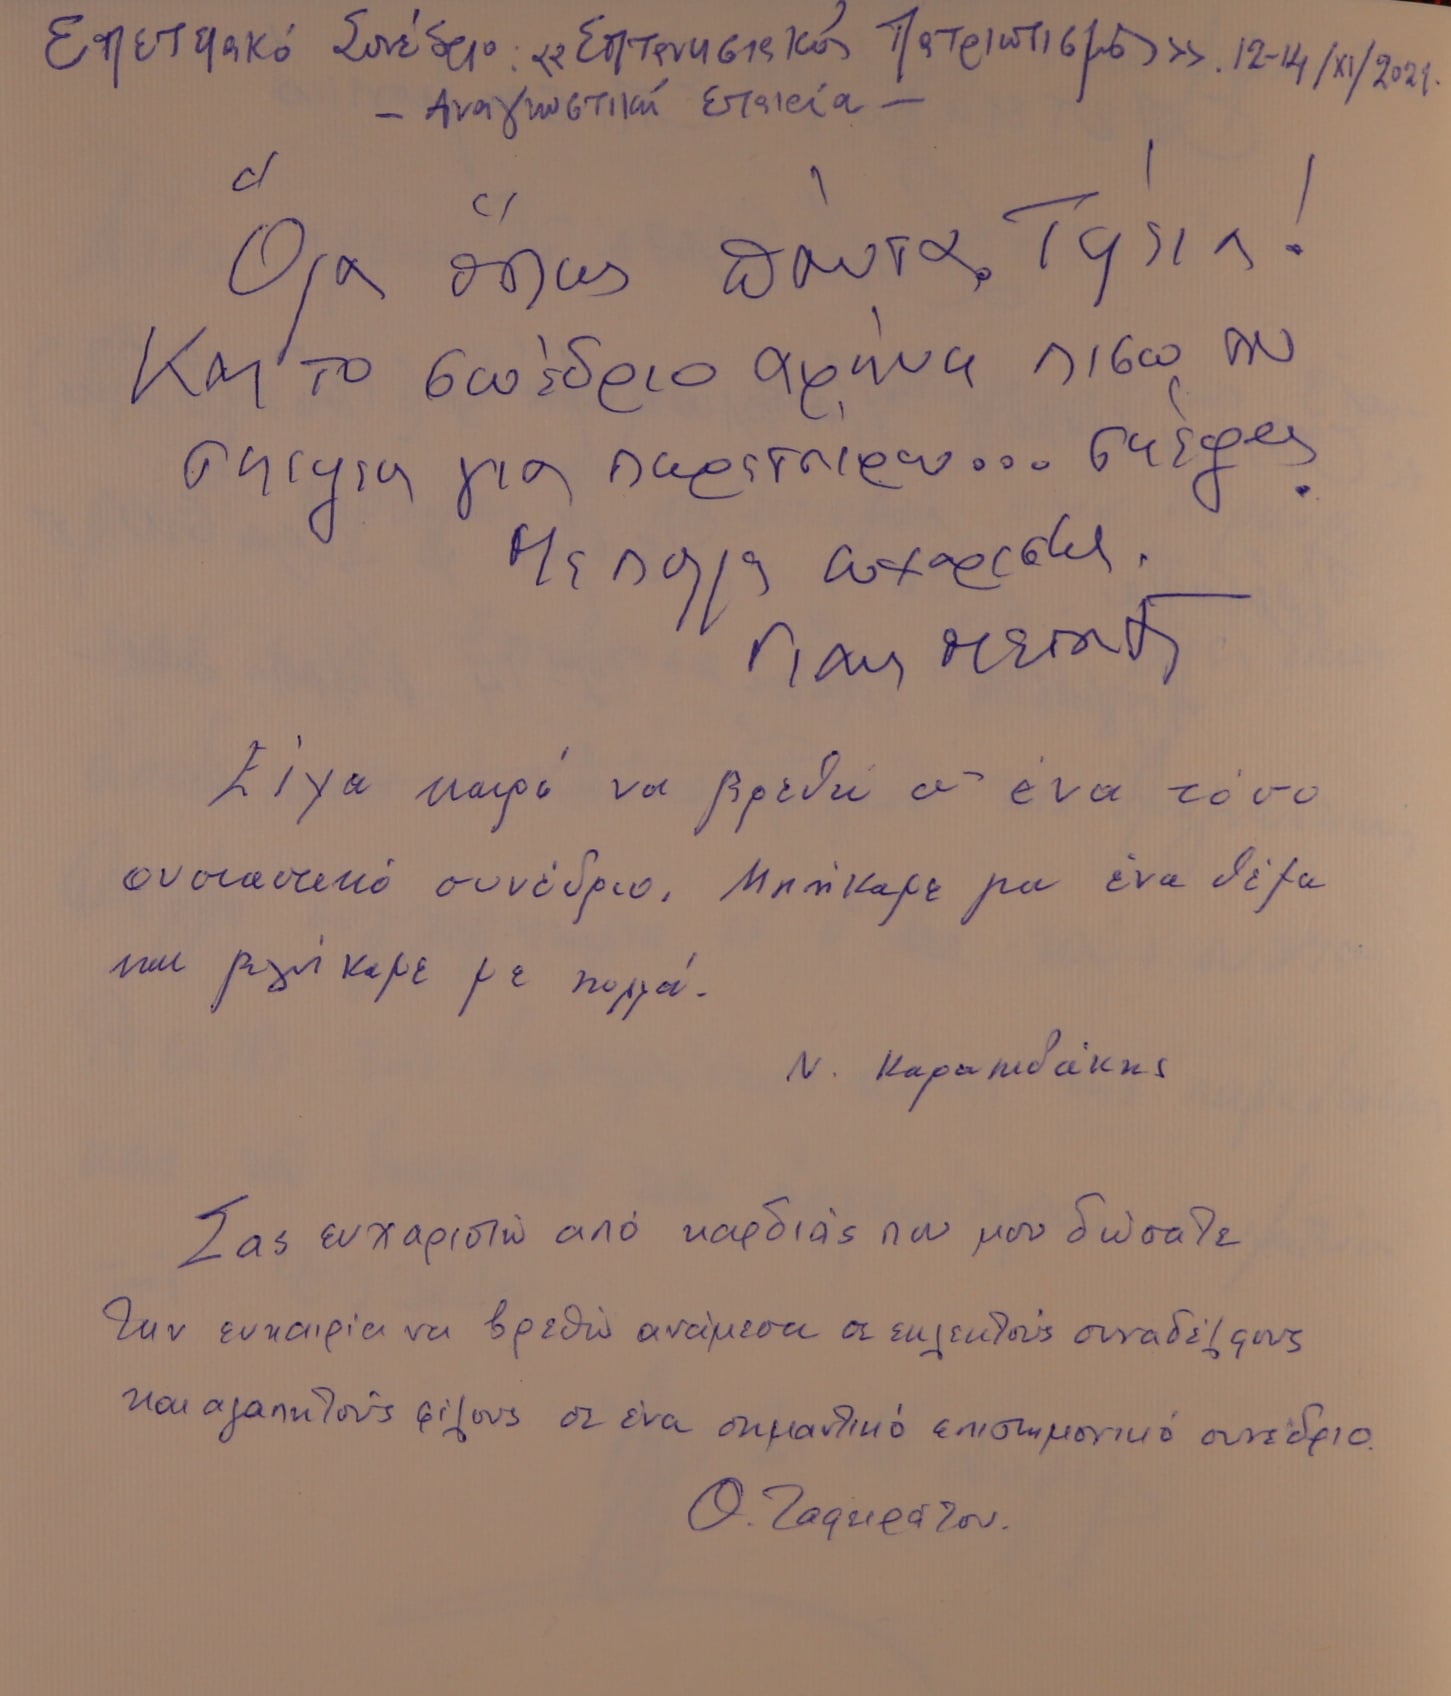 Επετειακό Συνέδριο: «Επτανησιακός Πατριωτισμός». 12-14/XI/2021.
- Αναγνωστική Εταιρεία -
Όλα όπως πάντα, Τέλεια!
Και το συνέδριο αφήνει πίσω του
για περαιτέρω... σκέψεις.
Με πολλές ευχαριστίες.
Γιάννης
Είχα καιρό να βρεθώ σ' ένα τόσο
ουσιαστικό συνέδριο. Μπήκαμε με ένα θέμα
και βγήκαμε με πολλά.
Ν. Καραπιδάκης
Σας ευχαριστώ από καρδιάς που μου δώσατε
την ευκαιρία να βρεθώ ανάμεσα σε εκλεκτούς συναδέλφους
και αγαπητούς φίλους σε ένα σημαντικό επιστημονικό συνέδριο.